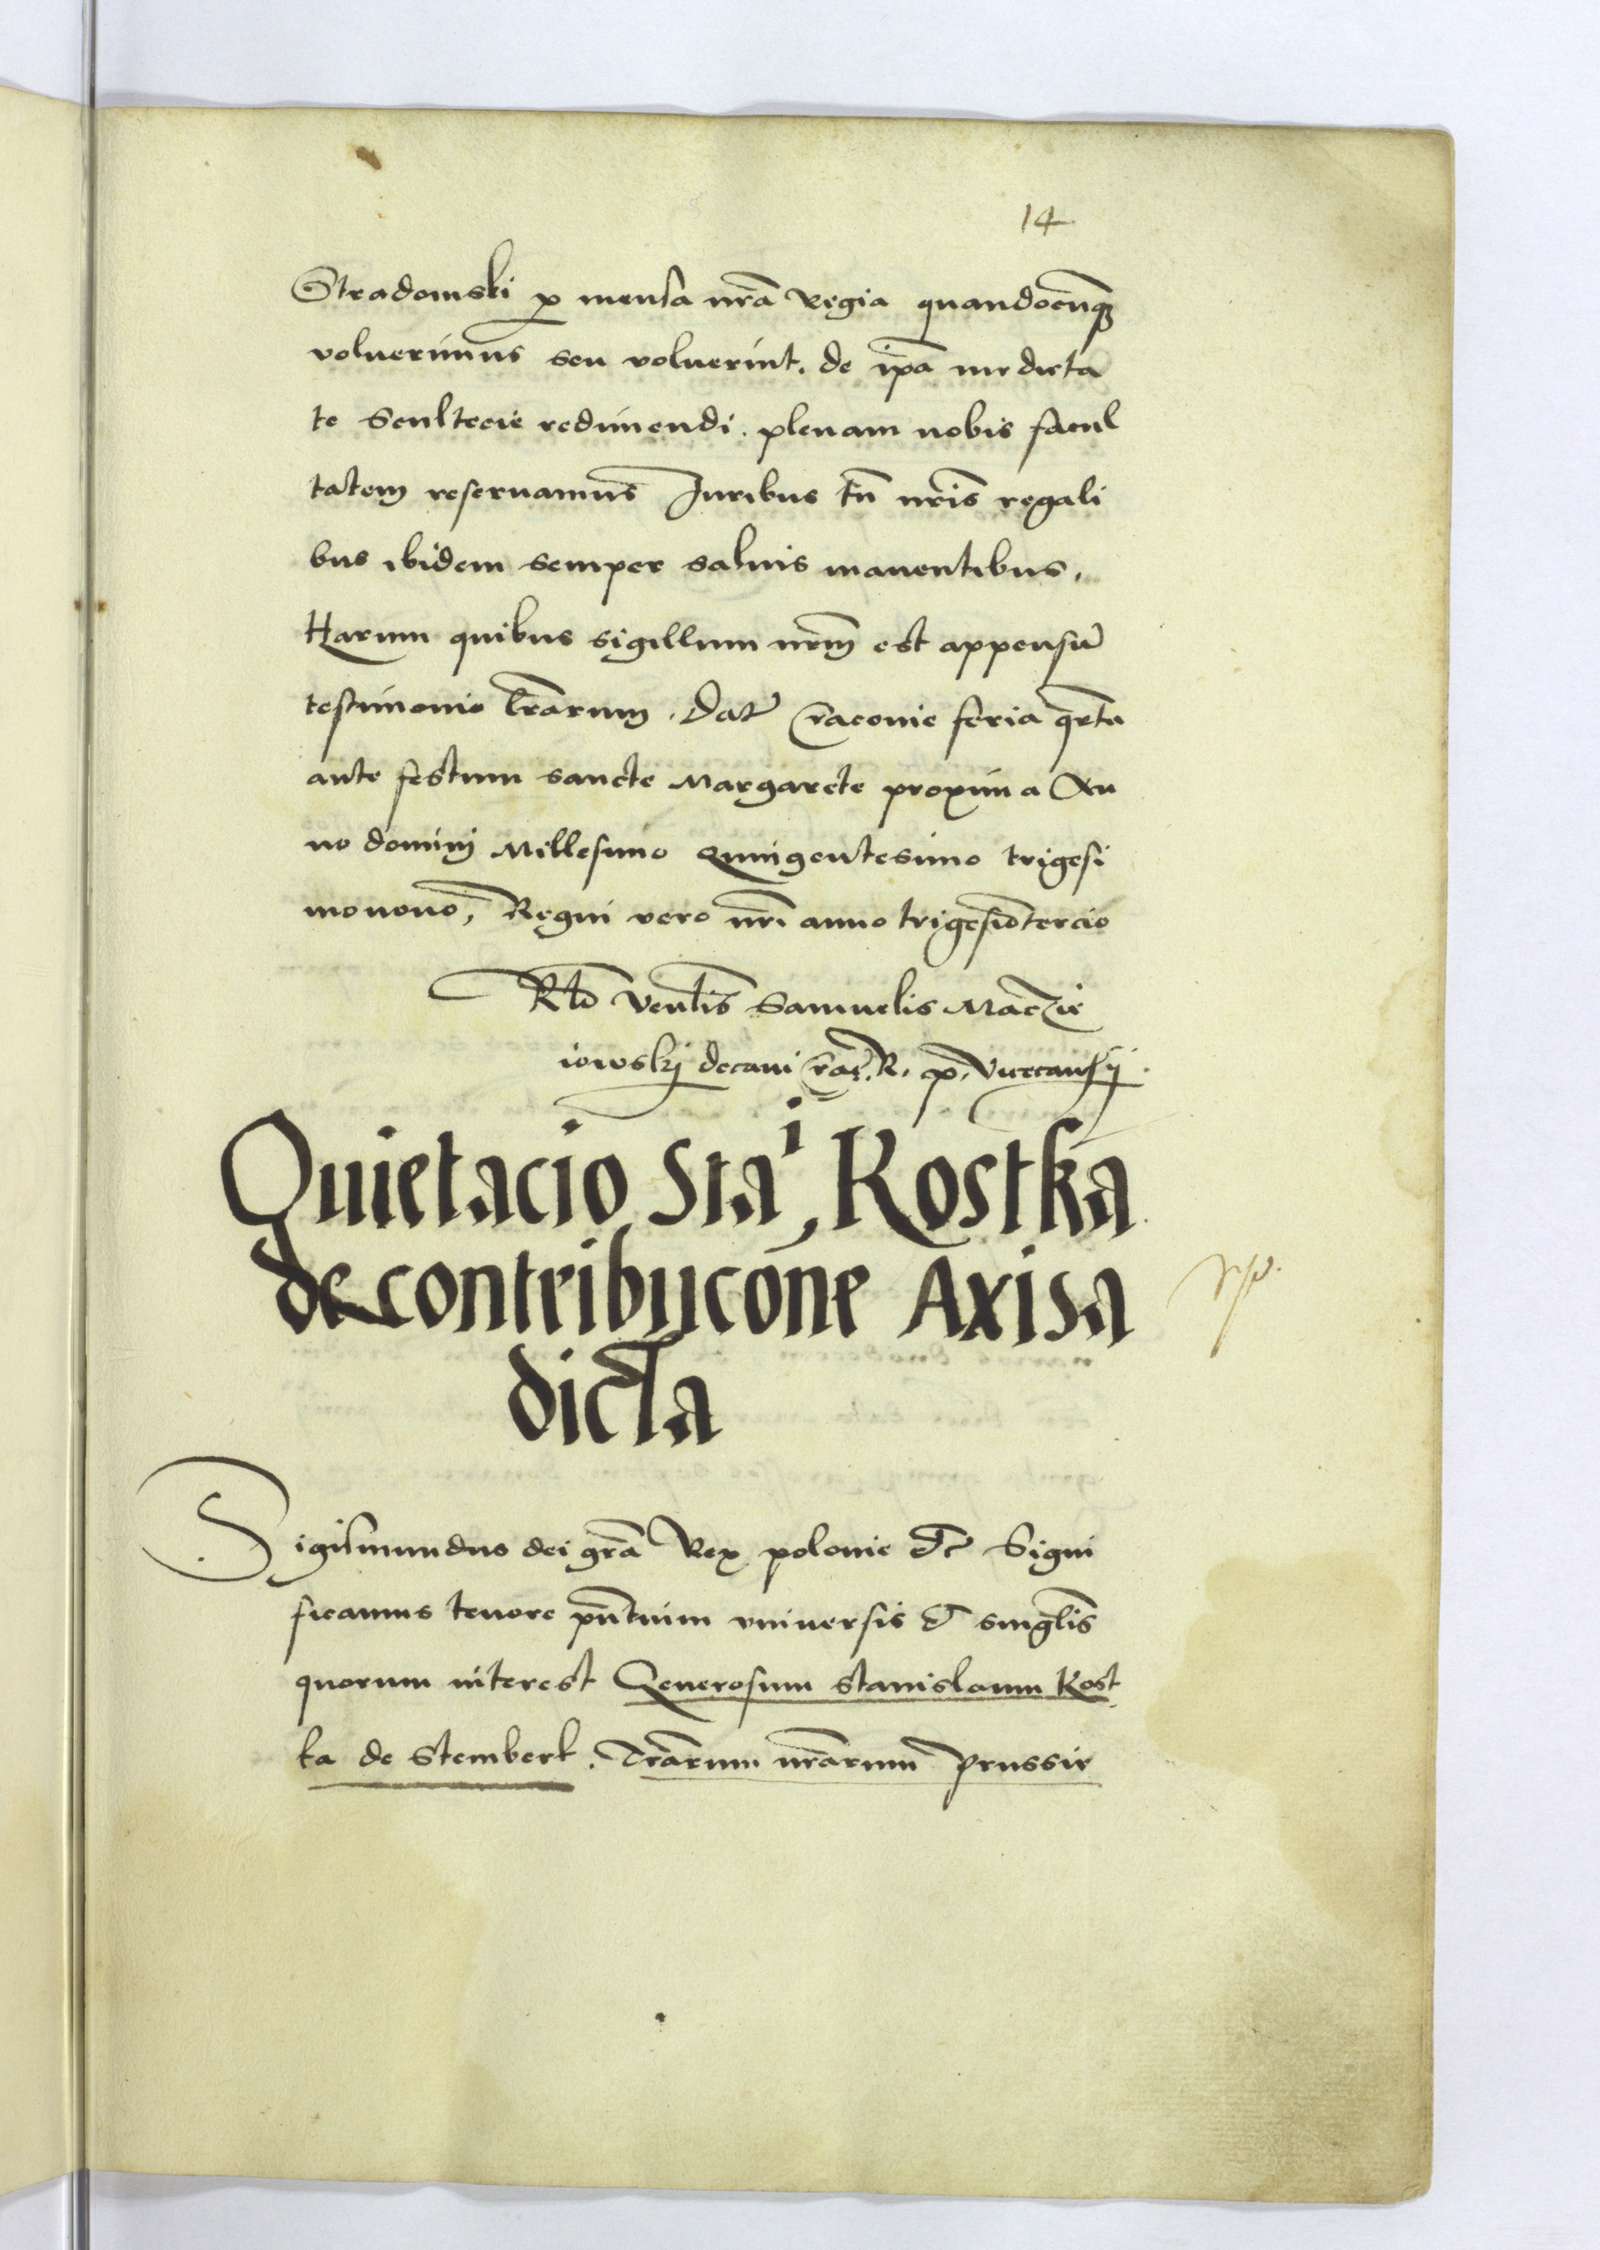 14
Stradomski p mensa nrā Regia quandocūqꝫ
voluerimus seu voluerint. de ipā medieta
te Scultecie redimendi. plenam nobis facul
tatem reservamus Juribus tn̄ nrīs regali
bus ibidem semper salvis manentibus.
Harum quibus sigillum nrm̄ est appensū
testimonio lrārum. Dat̄ Cracovie feria qrta
ante festum sancte Margarete proxima An
no domini Millesimo Quingentesimo trigesi
monono, Regni vero nrī anno trigesiōtercio
Rlō Venlis Samuelis Maczie
iowskj decani Crac̄. R. p. Vicecanrij
Quietacio Staⁱ, Kostka
de contribucōne Axisa
dicta
Sigismundus dei grā Rex polonie etc̄ Signi
ficamus tenore pn̄tium vniversis et singlis
quorum interest Generosum Stanislaum Kost
ka de Stemberk. Trārum nrārum Prussie